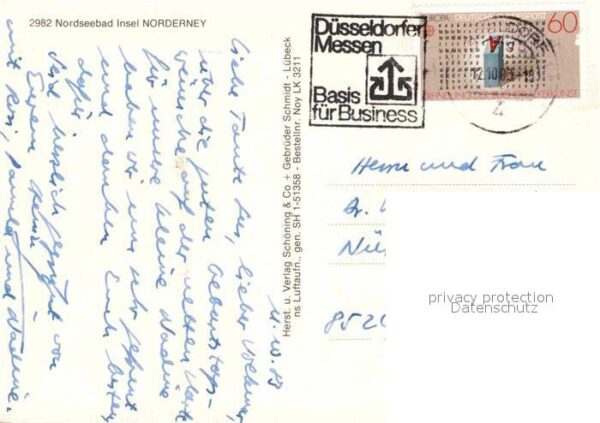 2982 Nordseebad Insel NORDERNEY
11.10.83
Liebe Tante Lus, lieber Volkmar,
über die guten Geburtstags-
wünsche auf der netten Karte
für unsere kleine Nadine
haben wir uns sehr gefreut
und danken Euch bestens
dafür.
Seid herzlich gegrüßt von
Eurem
mit Rosi, und Nadine.
Herst. u. Verlag Schöning & Co + Gebrüder Schmidt - Lübeck
ns Luftaufn., gen. SH 1-51358 - Bestellnr. Noy LK 3211
Düsseldorfer
Messen
Basis
für Business
12.10.83
EUROPA DEUTSCHE 60
ERFINDUNG DER BUCHDRUCKERKUNST
Herrn und Frau
852
privacy protection
Datenschutz